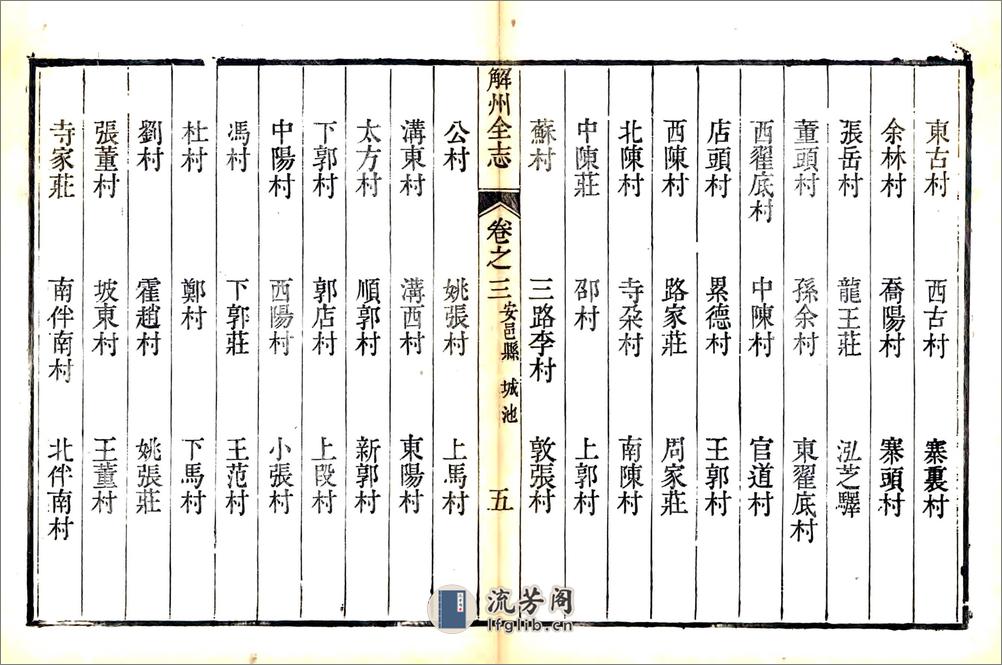 東古村 西古村 寨裏村
余林村 喬陽村 寨頭村
張岳村 龍王莊 泓芝驛
董頭村 孫余村 東翟底村
西翟底村 中陳村 官道村
店頭村 累德村 王郭村
西陳村 路家莊 周家莊
北陳村 寺桒村 南陳村
中陳莊 邵村 上郭村
蘇村 三路李村 敦張村
解州全志 卷之三 安邑縣 城池 五
公村 姚張村 上馬村
溝東村 溝西村 東陽村
太方村 順郭村 新郭村
下郭村 郭店村 上段村
中陽村 西陽村 小張村
馮村 下郭莊 王范村
杜村 鄭村 下馬村
劉村 霍趙村 姚張莊
張董村 坡東村 王董村
寺家莊 南伴南村 北伴南村
流芳阁
lfglib.cn